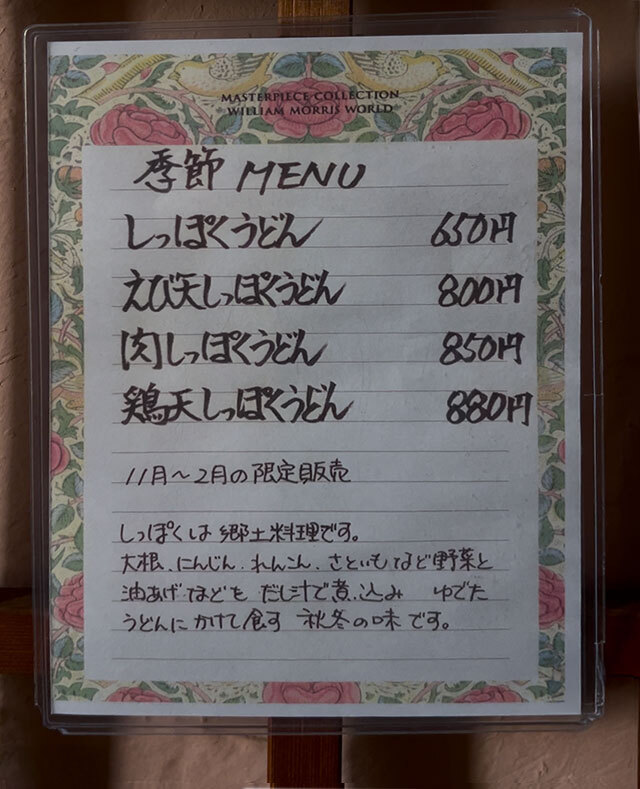 MASTERPIECE COLLECTION
WILLIAM MORRIS WORLD
季節 MENU
しっぽくうどん 650円
えび天しっぽくうどん 800円
肉しっぽくうどん 850円
鶏天しっぽくうどん 880円
11月〜2月の限定販売
しっぽくは郷土料理です。
大根、にんじん、れんこん、さといもなど野菜と
油あげなどを だし汁で煮込み ゆでた
うどんにかけて食す 秋冬の味です。